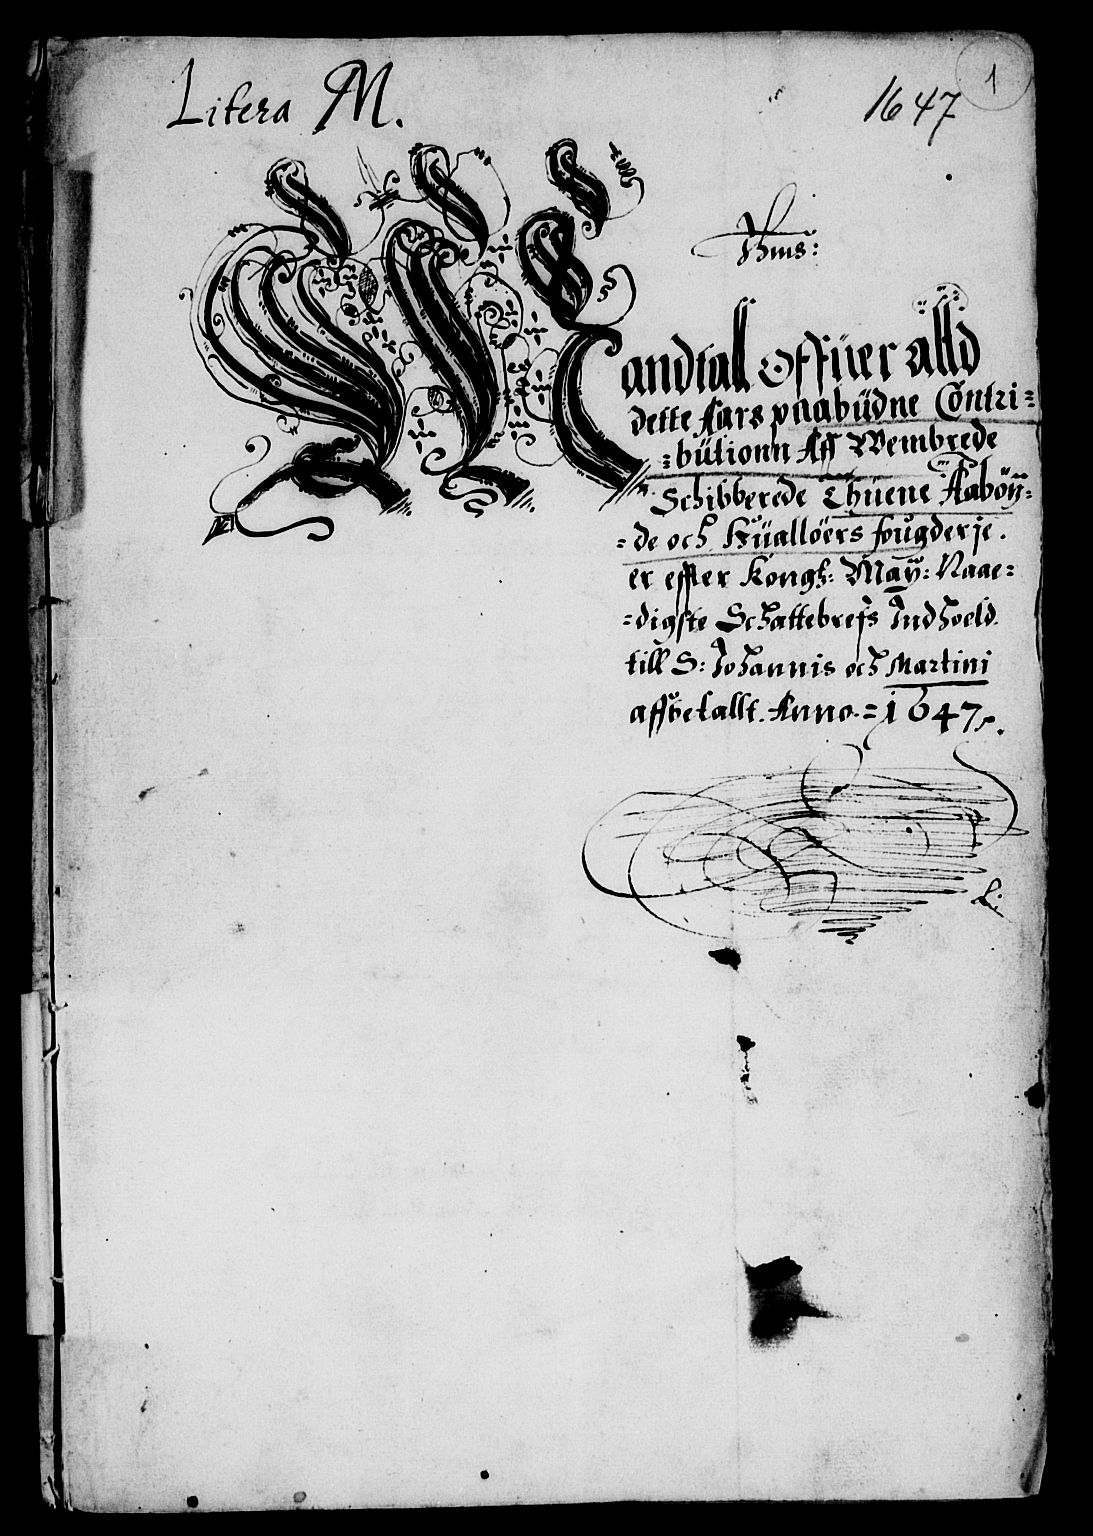 Litera M.
1647
1
Jhms:
Mandtall offüer alld
dette Aars paabüdne Contri=
=bütionn Aff Wembrede
Schibberede Thüene Aaböÿ=
=de och Hüallöers fougderje.
er effter Kongh: Maÿ: Naae=
=digste Schattebrefs Indhoeld
till S: Johannis och Martini
affbetallt. Anno.=1647.